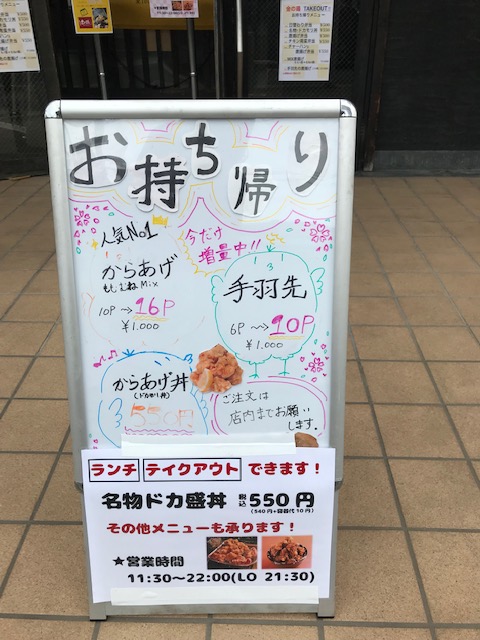 金の蔵 TAKEOUT
お持ち帰り
人気No.1
からあげ
ももむねMix
10P→16P
¥1.000
今だけ
増量中!!
手羽先
6P→10P
¥1.000
からあげ丼
(ドカ盛り丼)
550円
ご注文は
店内までお願い
します。
ランチ テイクアウト できます！
名物ドカ盛丼 税込 550円
(540円+容器代10円)
その他メニューも承ります！
★営業時間
11:30～22:00(LO 21:30)